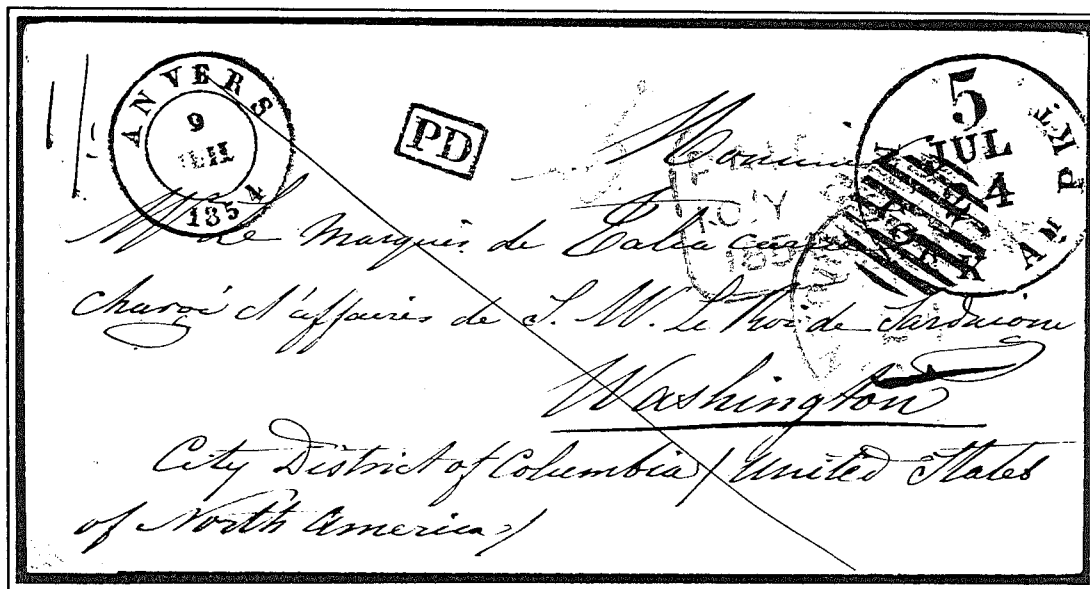 ANVERS
9
1854
PD
5
JUL
24
AM PKT
Monsieur
Mr le Marquis de
chargé d'affaires de S. M. Le Roi de Sardaigne
Washington
City District of Columbia / United States
of North America /